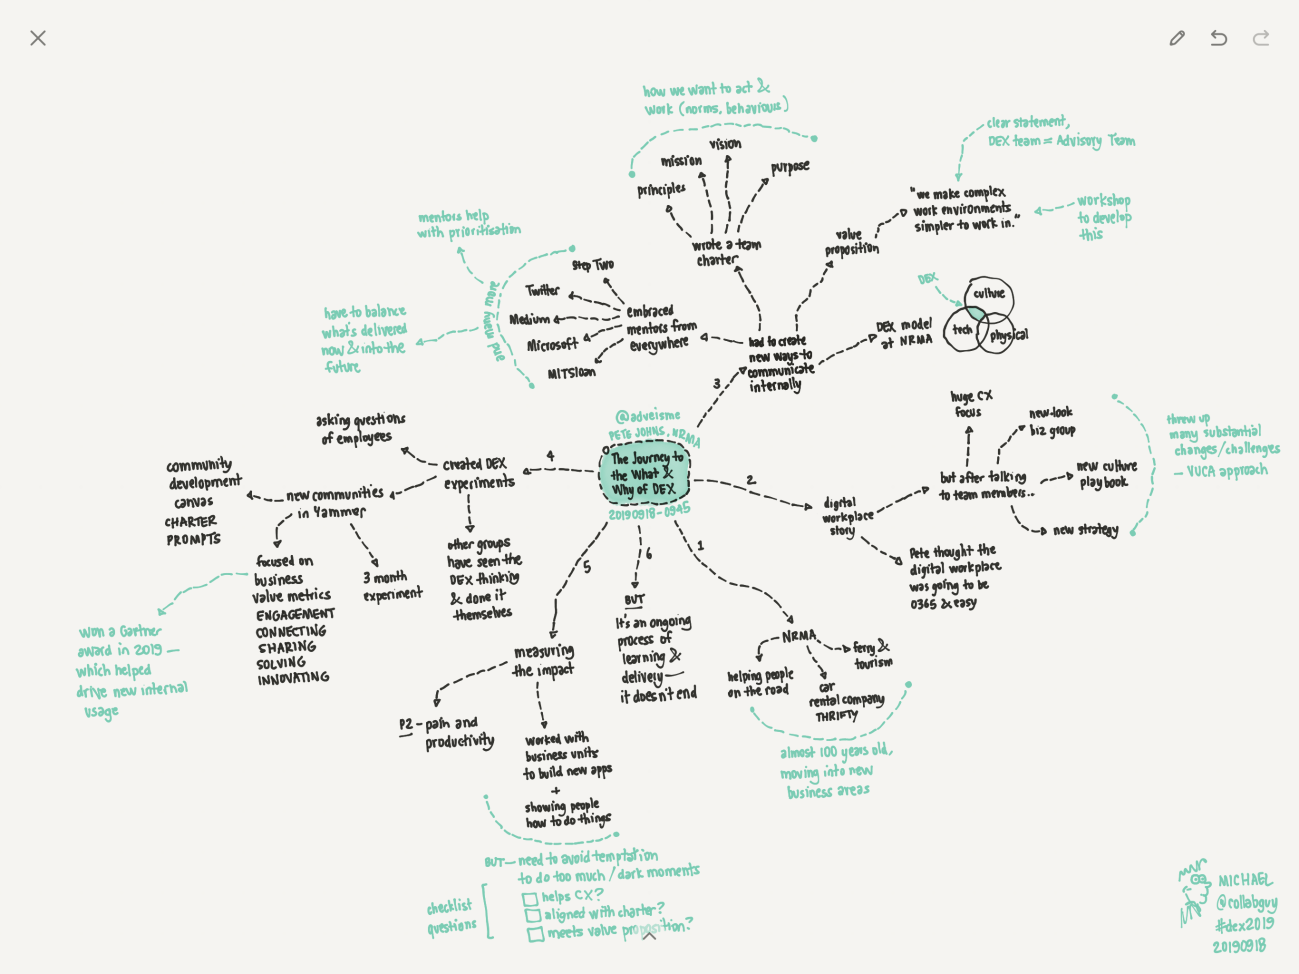 how we want to act &
work (norms, behaviours)
vision
mission
purpose
principles
wrote a team
charter
clear statement,
DEX team = Advisory Team
"we make complex
work environments
simpler to work in."
workshop
to develop
this
value
proposition
mentors help
with prioritisation
Step Two
Twitter
Medium
Microsoft
MITSloan
and many more
embraced
mentors from
everywhere
have to balance
what's delivered
now & into the
future
DEX
culture
tech
physical
DEX model
at NRMA
had to create
new ways to
communicate
internally
3
@adveisme
PETE JOHNS, NRMA
The Journey to
the What &
Why of DEX
20190918-0945
huge CX
focus
new-look
biz group
new culture
playbook
new strategy
but after talking
to team members..
threw up
many substantial
changes/challenges
— VUCA approach
2
digital
workplace
story
Pete thought the
digital workplace
was going to be
O365 & easy
4
asking questions
of employees
created DEX
experiments
community
development
canvas
CHARTER
PROMPTS
new communities
in Yammer
focused on
business
value metrics
ENGAGEMENT
CONNECTING
SHARING
SOLVING
INNOVATING
3 month
experiment
other groups
have seen the
DEX thinking
& done it
themselves
won a Gartner
award in 2019 —
which helped
drive new internal
usage
5
measuring
the impact
P2 - pain and
productivity
worked with
business units
to build new apps
+
showing people
how to do things
BUT — need to avoid temptation
to do too much / dark moments
checklist
questions
helps CX?
aligned with charter?
meets value proposition?
6
BUT
It's an ongoing
process of
learning &
delivery —
it doesn't end
1
NRMA
ferry &
tourism
helping people
on the road
car
rental company
THRIFTY
almost 100 years old,
moving into new
business areas
MICHAEL
@collabguy
#dex2019
20190918